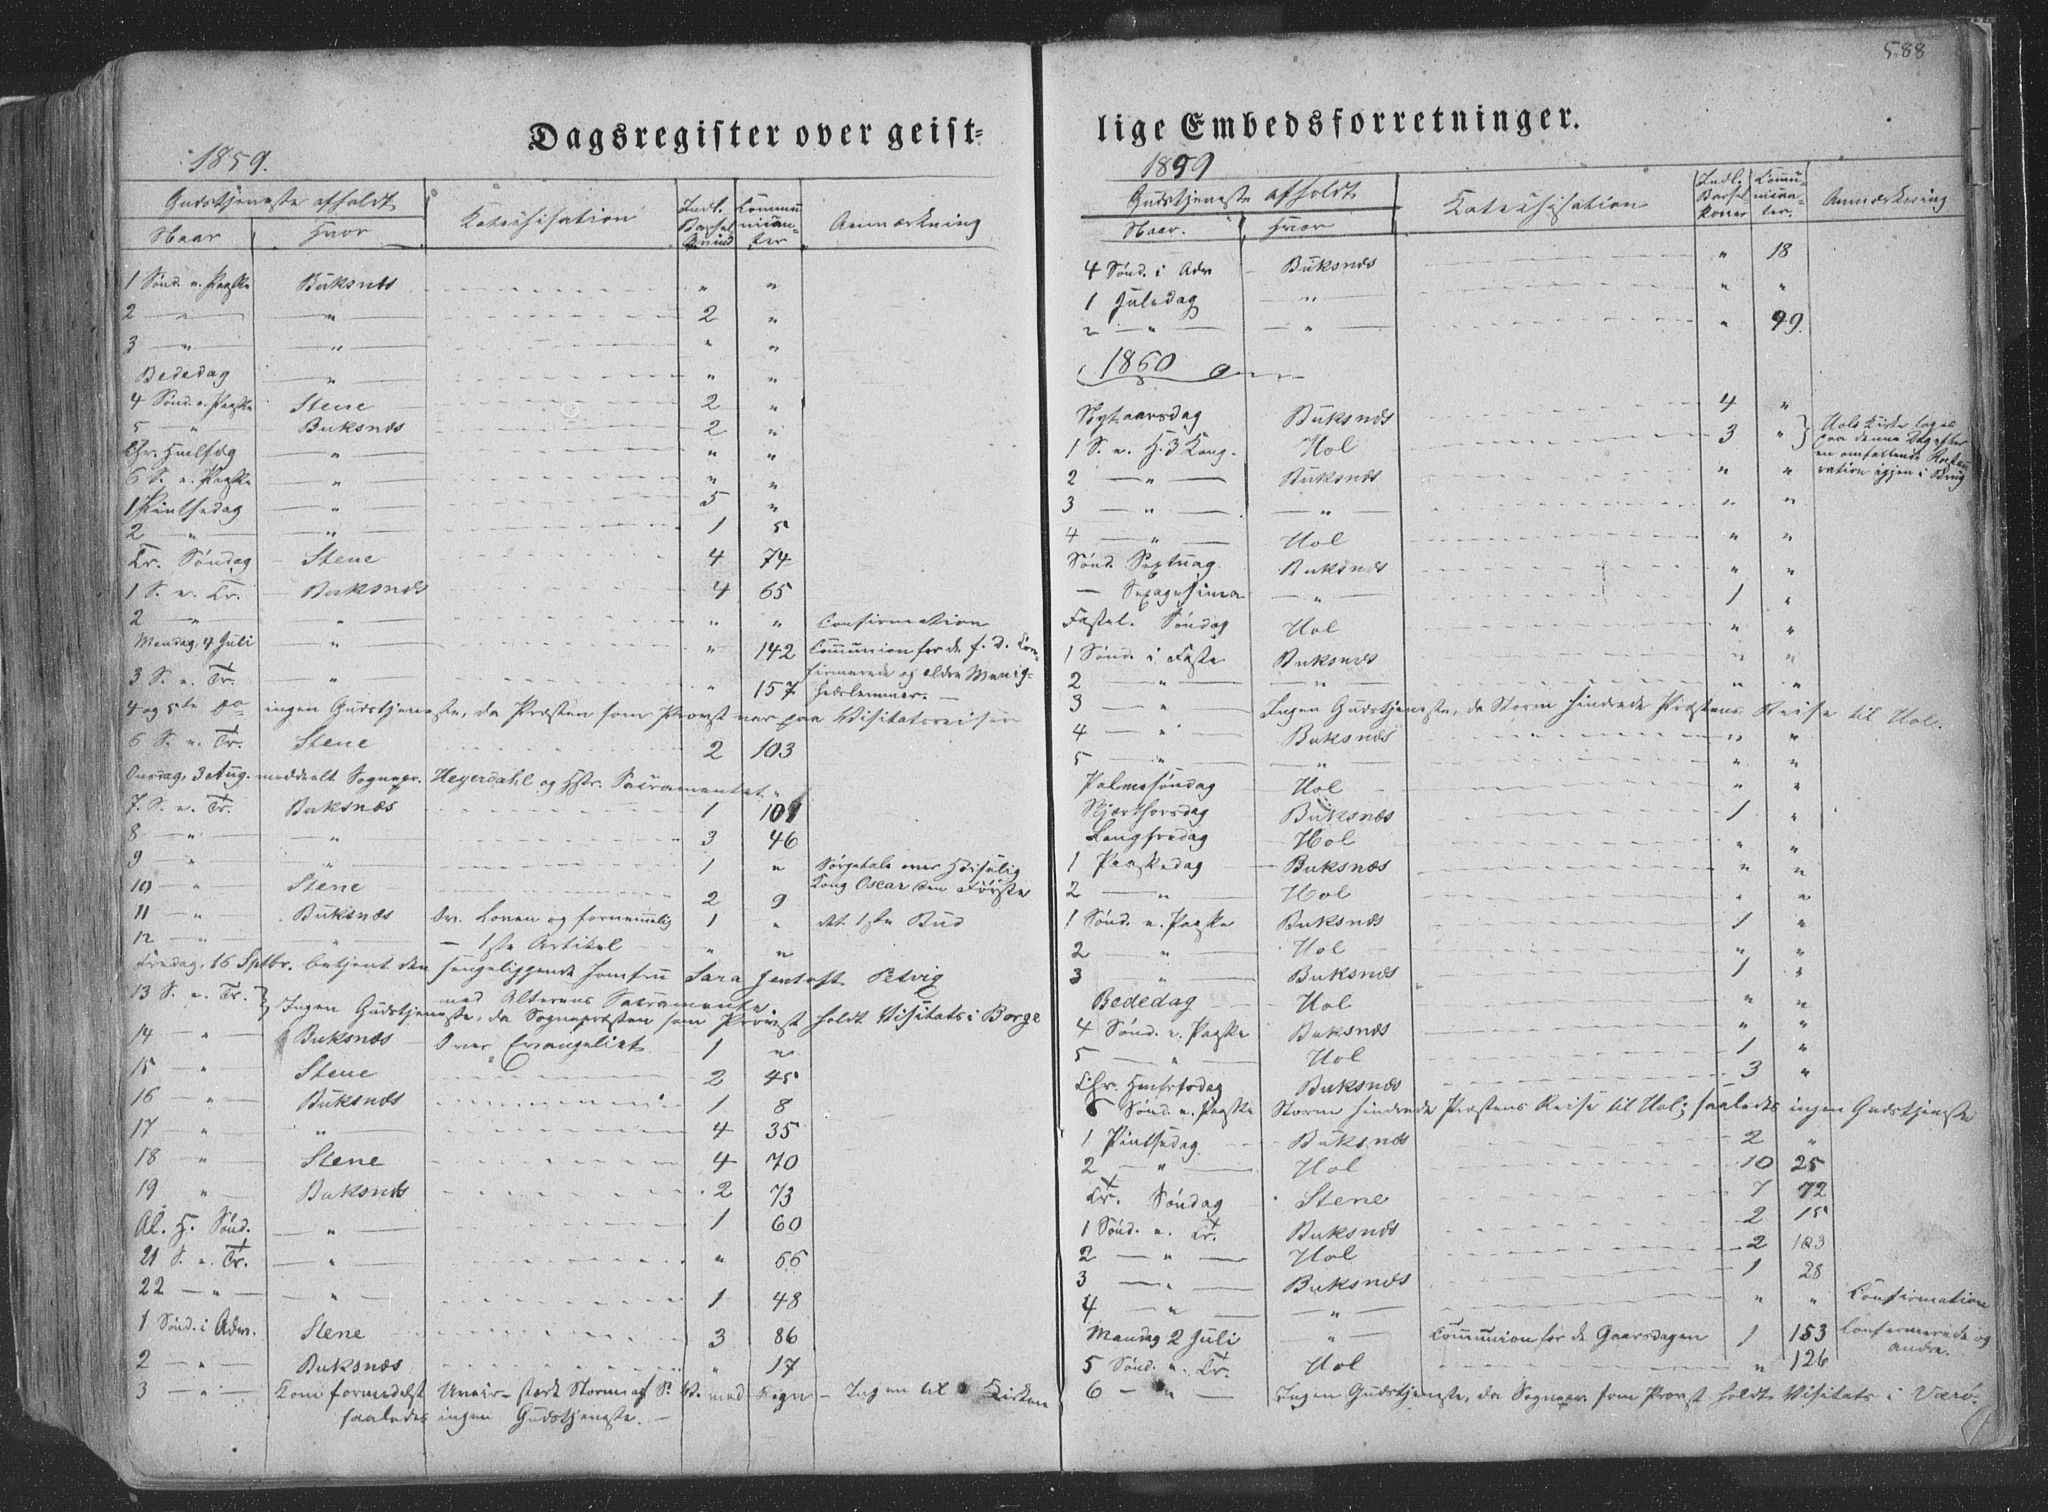 588
Dagsregister over geist=
1859.
Gudstjeneste afholdt
Naar
Hvor
Katechisation
Indl. Barsel
Commu nican- ter
Anmærkning
1 Sønd. e. Paaske Buksnæs " "
2 — " — " 2 "
3 — " — " " "
Bededag " " "
4 Sønd. e. Paaske Stene 2 "
5 " Buksnæs 2 "
Chr. Himlfdg " " "
6 S. e. Paaske " " "
1 Pintsedag " 5 "
2 — " — " 1 5
Tr. Søndag Stene 4 74
1 S. e. Tr. Buksnæs 4 65
2 " " " " Confirmation
Mandag, 4 Juli " " 142 Communion for de f. D. Con-
firmerede og eldre Menig-
3 S. e. Tr. " " 157 hedslemmer. —
4 og 5te do ingen Gudstjeneste, da Præsten som Provst var paa Visitatsreiser
6 S. e. Tr. Stene 2 103
Onsdag, 3 Aug. meddeelt Sognepr. Heyerdahl og Hstr. Sacramentet.
7. S. e. Tr. Buksnæs 1 101
8 — " — " 3 46
9 — " — " 1 " Sørgetale over Høisalig
10 — " Stene 2 9 Kong Oscar den Første
11 — " Buksnæs Ov. Loven og fornemmelig 1 " det 1ste Bud
12 — " — " — 1ste Artikel — " "
Fredag, 16 Sptbr. betjent den sengeliggende Jomfru Sara Jentoft Petvig
med Alterens Sacramente.
13 S. e. Tr. } Ingen Gudstjeneste, da Sognepræsten som Provst holdt Visitats i Borge
14 " Buksnæs Over Evangeliet 1 "
15 " Stene 2 45
16 " Buksnæs 1 8
17 " " 4 35
18 " Stene 4 70
19 " Buksnæs 2 73
Al. H. Sønd. " 1 60
21 S. e. Tr. " " 66
22 — " — " 1 48
1 Sønd. i Adv. Stene 3 86
2 — " — Buksnæs " 17
3 — " — formedelst Storm af
saaledes ingen Gudstjeneste. —
lige Embedsforretninger.
1859
Gudstjeneste afholdt
Naar.
Hvor
Katechisation
Indl. Barsel koner
Commu- nican- ter.
Anmærkning
4 Sønd. i Adv Buksnæs " 18
1 Juledag — " — " "
2 — " — — " — " 99.
1860
Nytaarsdag Buksnæs 4 "
1 S. e. H. 3 Kong. Hol 3 " } Hols Kirke toges
paa denne Dag efter
en omfattende Restau
ration igjen i Brug
2 — " — Buksnæs " "
3 — " — " " "
4 — " — Hol " "
Sønd. Septuag. Buksnæs " "
— Sexagesima — " — 1 "
Fastel. Søndag Hol " "
1 Sønd. i Faste Buksnæs " "
2 " " " "
3 " Ingen Gudstjeneste, da Storm hindrede Præstens Reise til Hol.
4 " Buksnæs " "
5 " " " "
Palmesøndag Hol " "
Skjærthorsdag Buksnæs 1 "
Langfredag Hol " "
1 Paaskedag Buksnæs " "
2 — " Hol " "
1 Sønd. e. Paaske Buksnæs 1 "
2 " Hol " "
3 " Buksnæs 1 "
Bededag Hol " "
4 Sønd. e. Paaske Buksnæs " "
5 — " — Hol 1 "
Chr. Himfrtsdag Buksnæs 3 "
6 Sønd. e. Paaske Storm hindrede Præstens Reise til Hol; saaledes ingen Gudstjeneste
1 Pintsedag Buksnæs 2 "
2 — " — Hol 10 25
Tr. Søndag Stene 7 72
1 Sønd. e. Tr. Buksnæs 2 15
2 — " — Hol 2 103
3 — " — Buksnæs 1 28
4 — " — " " " Confirmation
Mandag 2 Juli " Communion for de Gaarsdagen 1 153 Confirmerede og
andre.
5 Sønd. e. Tr. Hol " 126
6 — " — Ingen Gudstjeneste, da Sognepr. som Provst holdt Visitats i Værø.